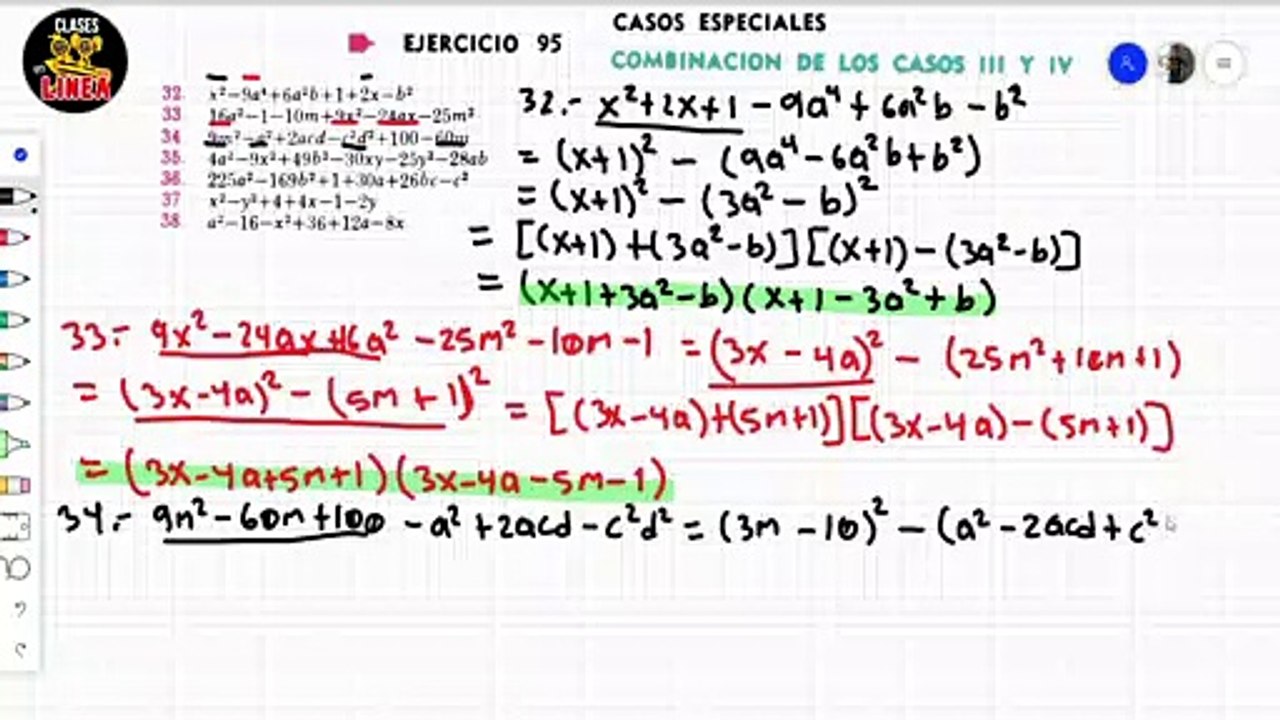 CLASES
EN
LINEA
CASOS ESPECIALES
EJERCICIO 95
COMBINACION DE LOS CASOS III Y IV
32. x²−9a⁴+6a²b+1+2x−b²
33. 16a²−1−10m+9x²−24ax−25m²
34. 9m²−a²+2acd−c²d²+100−60m
35. 4a²−9x²+49b²−30xy−25y²−28ab
36. 225a²−169b²+1+30a+26bc−c²
37. x²−y²+4+4x−1−2y
38. a²−16−x²+36+12a−8x
32.- x²+2x+1 − 9a⁴ + 6a²b − b²
= (x+1)² − (9a⁴ − 6a²b + b²)
= (x+1)² − (3a² − b)²
= [(x+1) + (3a²−b)][(x+1) − (3a²−b)]
= (x+1+3a²−b)(x+1−3a²+b)
33.- 9x² − 24ax + 16a² − 25m² − 10m − 1 = (3x − 4a)² − (25m² + 10m + 1)
= (3x−4a)² − (5m + 1)² = [(3x−4a)+(5m+1)][(3x−4a)−(5m+1)]
= (3x−4a+5m+1)(3x−4a−5m−1)
34.- 9m² − 60m + 100 − a² + 2acd − c²d² = (3m − 10)² − (a² − 2acd + c²